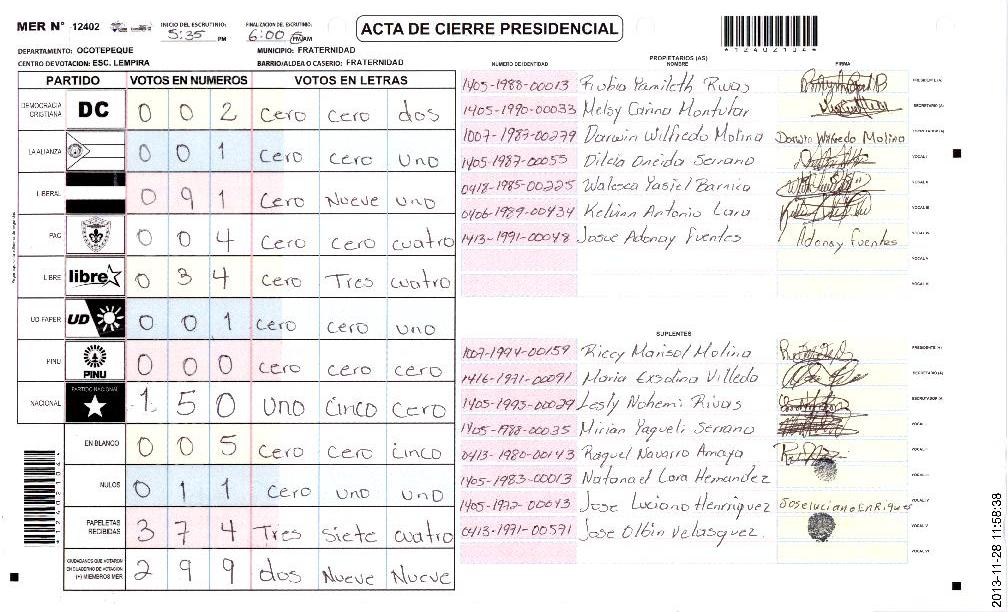 MER N° 12402
INICIO DEL ESCRUTINIO: 5:35 PM
FINALIZACION DEL ESCRUTINIO: 6:00 PM AM
ACTA DE CIERRE PRESIDENCIAL
*12402104*
DEPARTAMENTO: OCOTEPEQUE
MUNICIPIO: FRATERNIDAD
CENTRO DE VOTACION: ESC. LEMPIRA
BARRIO/ALDEA O CASERIO: FRATERNIDAD
PARTIDO VOTOS EN NUMEROS VOTOS EN LETRAS
DEMOCRACIA CRISTIANA DC 0 0 2 cero cero dos
LA ALIANZA 0 0 1 cero cero uno
LIBERAL 0 9 1 cero Nueve uno
PAC 0 0 4 cero cero cuatro
LIBRE libre 0 3 4 cero Tres cuatro
UD FAPER UD 0 0 1 cero cero uno
PINU PINU 0 0 0 cero cero cero
NACIONAL PARTIDO NACIONAL 1 5 0 uno cinco cero
EN BLANCO 0 0 5 cero cero cinco
NULOS 0 1 1 cero uno uno
PAPELETAS RECIBIDAS 3 7 4 Tres siete cuatro
CIUDADANOS QUE VOTARON EN CUADERNO DE VOTACION (+) MIEMBROS MER 2 9 9 dos Nueve Nueve
PROPIETARIOS (AS)
NUMERO DE IDENTIDAD NOMBRE FIRMA
1405-1988-00013 Rubia Yamileth Rivas PRESIDENTE (A)
1405-1990-00033 Melsy Carina Montufar SECRETARIO (A)
1007-1987-00279 Darwin Wilfredo Molina Darwin Wilfredo Molina ESCRUTADOR (A)
1405-1987-00055 Dilcia Oneida Serrano VOCAL I
0418-1985-00225 Walesca Yasiel Barnica VOCAL II
0406-1989-00434 Kelvin Antonio Lara VOCAL III
1413-1991-00048 Josue Adonay Fuentes Adonay Fuentes VOCAL IV
VOCAL V
VOCAL VI
SUPLENTES
1007-1994-00159 Riccy Marisol Molina PRESIDENTE (A)
1416-1971-00091 Maria Exsolina Villeda SECRETARIO (A)
1405-1995-00029 Lesly Nohemi Rivas ESCRUTADOR (A)
1405-1988-00035 Mirian Yaqueli Serrano VOCAL I
0413-1980-00143 Raquel Navarro Amaya VOCAL II
1405-1983-00013 Natanael Lara Hernandez VOCAL III
1405-1972-00043 Jose Luciano Henrriquez Jose luciano EnRiques VOCAL IV
0413-1971-00571 Jose Olbin Velasquez. VOCAL V
VOCAL VI
*12402104*
2013-11-28 11:58:38